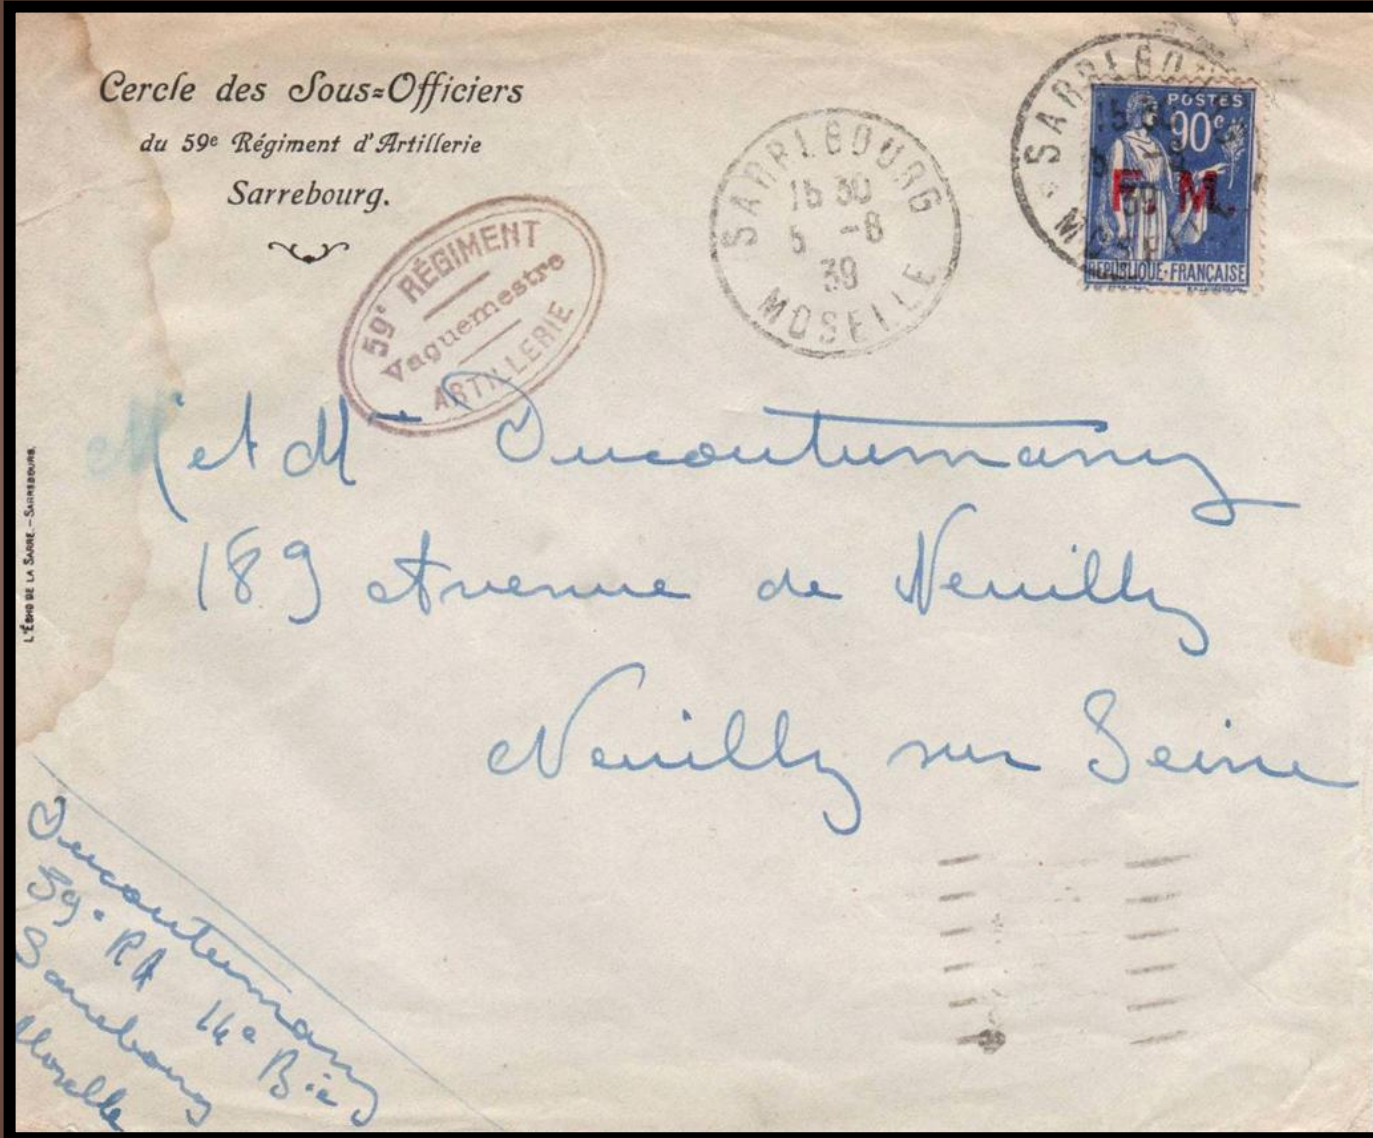 Cercle des Sous=Officiers
du 59e Régiment d'Artillerie
Sarrebourg.
59e RÉGIMENT
Vaguemestre
ARTILLERIE
SARREBOURG
15 30
5 -8
39
MOSELLE
SARREBOURG
15 30
5 -8
39
MOSELLE
POSTES
90c
F. M.
RÉPUBLIQUE·FRANÇAISE
L'ÉCHO DE LA SARRE.–SARREBOURG.
M et Me Ducoutumany
189 Avenue de Neuilly
Neuilly sur Seine
Ducoutumany
59e RA 14e Bie
Sarrebourg
Moselle